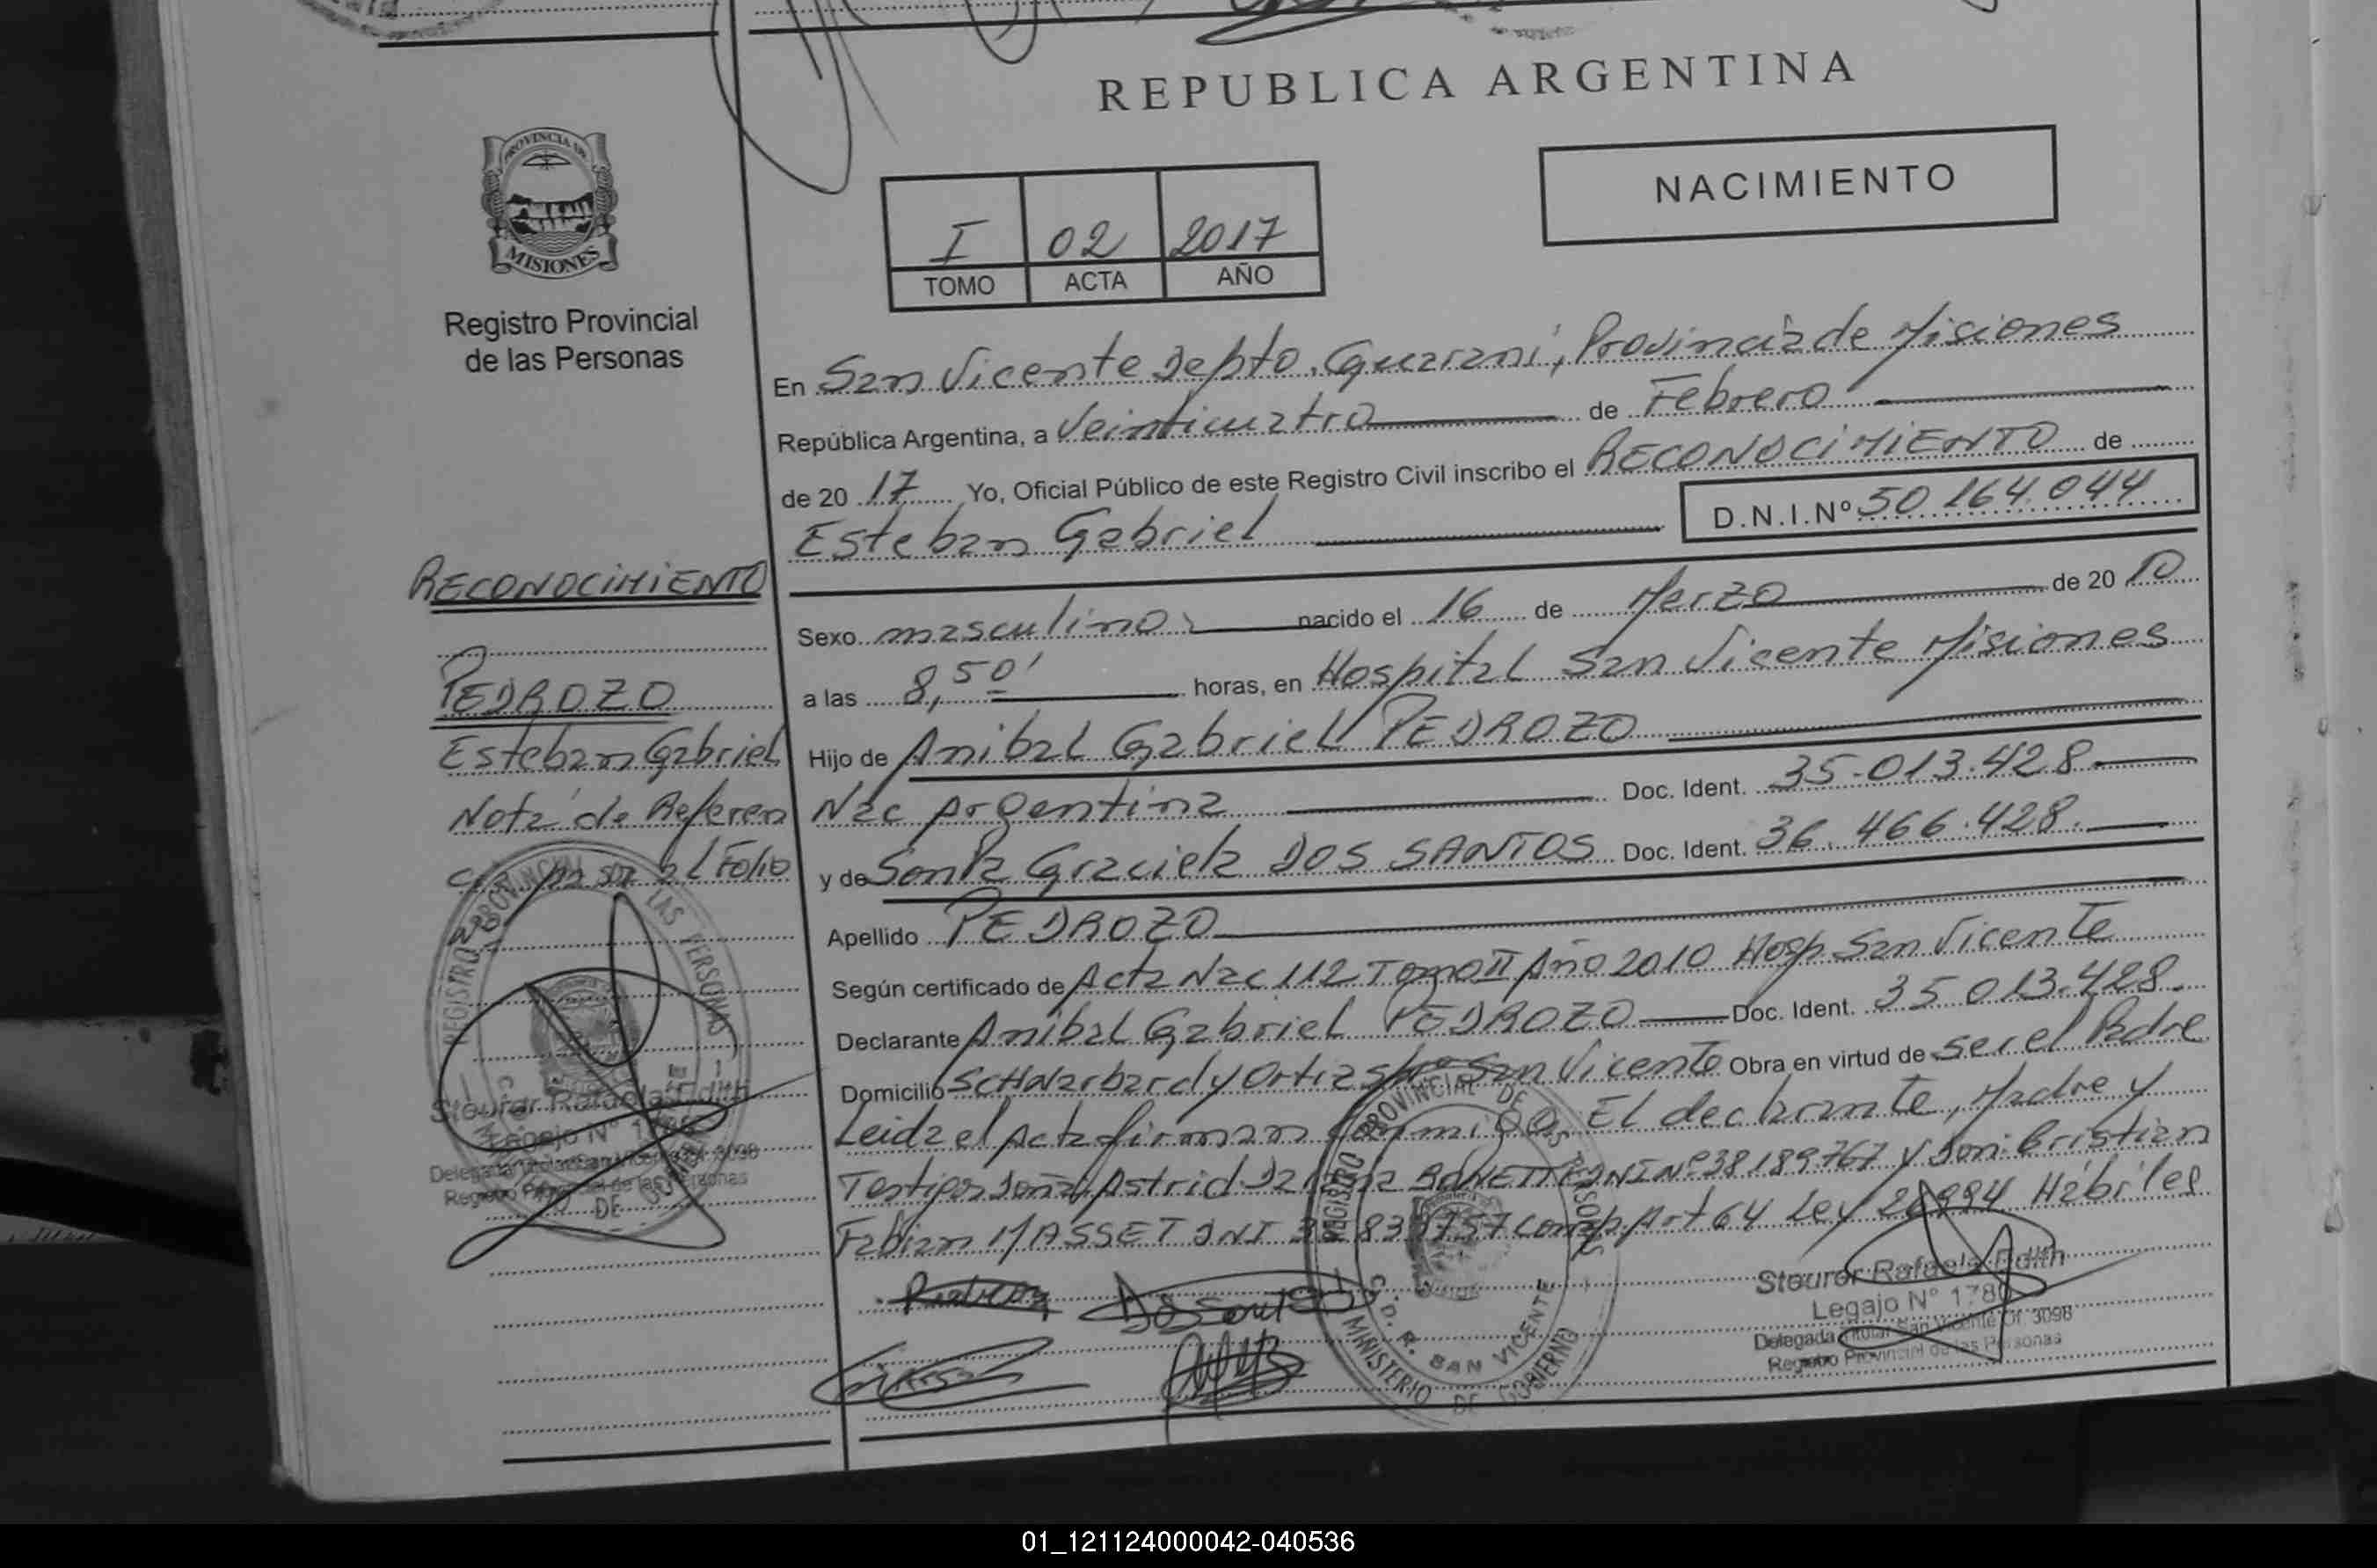 REPUBLICA ARGENTINA
NACIMIENTO
PROVINCIA DE
MISIONES
Registro Provincial
de las Personas
I 02 2017
TOMO ACTA AÑO
En San Vicente Depto. Guarani, Provincia de Misiones
República Argentina, a Veinticuatro de Febrero
de 20 17 Yo, Oficial Público de este Registro Civil inscribo el RECONOCIMIENTO de
Esteban Gabriel D.N.I.Nº 50 164.044
RECONOCIMIENTO
PEDROZO
Esteban Gabriel
Nota de Referen
cia al Folio
Sexo masculino nacido el 16 de Marzo de 20 10
a las 8,50' horas, en Hospital San Vicente Misiones
Hijo de Anibal Gabriel PEDROZO
Nac Argentina Doc. Ident. 35.013.428
y de Sonia Graciela DOS SANTOS Doc. Ident. 36.466.428.
Apellido PEDROZO
Según certificado de Acta Nac 112 Tomo II Año 2010 Hosp San Vicente
Declarante Anibal Gabriel PEDROZO Doc. Ident. 35 013.428.
Domicilio San Vicente Obra en virtud de ser el Padre
Leida el Acta firman El declarante, Madre y
Testigos Doña Astrid DNI Nº 38189.767 y Don Cristian
Fabian MASSET DNI Comp. Art 64 Ley Hábiles
Stourer Rafaela Edith
Legajo Nº 178
Delegada Titular San Vicente Of 3098
Registro Provincial de las Personas
REGISTRO PROVINCIAL DE LAS PERSONAS
C. D. R. SAN VICENTE
MINISTERIO DE GOBIERNO
REGISTRO PROVINCIAL LAS PERSONAS
Stourer Rafaela Edith
Legajo Nº
Registro Provincial de las Personas
01_121124000042-040536